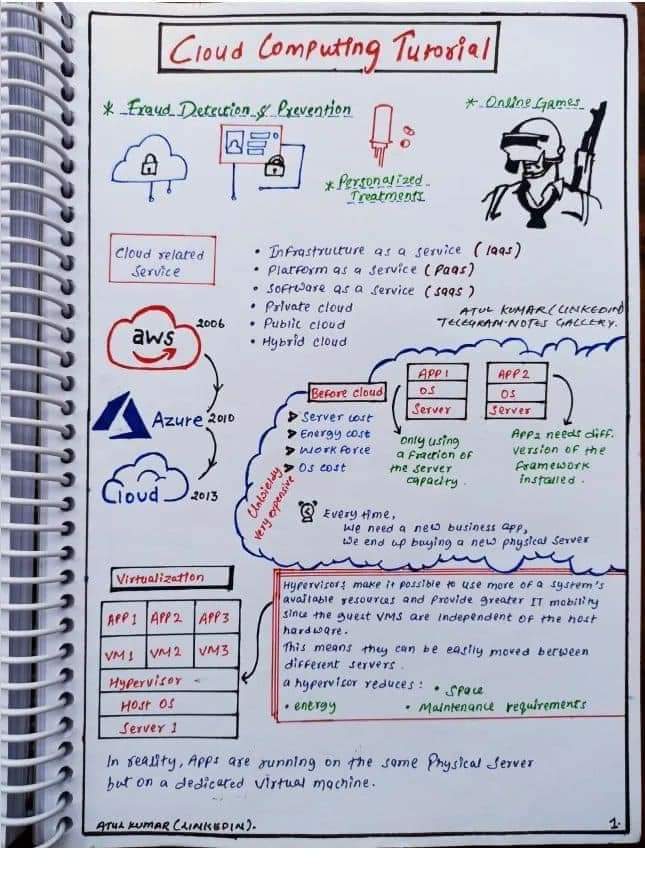 Cloud Computing Tutorial
* Fraud Detection & Prevention
* Online Games
* Personalized
Treatments
Cloud related
Service
• Infrastructure as a service (Iaas)
• Platform as a service (Paas)
• Software as a service (saas)
• Private cloud
• Public cloud
• Hybrid cloud
ATUL KUMAR (LINKEDIN)
TELEGRAM-NOTES GALLERY.
aws 2006
Azure 2010
Cloud 2013
Before cloud
➤ Server cost
➤ Energy cost
➤ Work force
➤ OS cost
Unwieldy
very expensive
APP 1
OS
Server
APP 2
OS
Server
only using
a fraction of
the server
capacity.
App2 needs diff.
version of the
framework
installed.
Every time,
we need a new business app,
We end up buying a new physical server
Virtualization
APP 1 APP 2 APP 3
VM 1 VM 2 VM3
Hypervisor
Host OS
Server 1
Hypervisors make it possible to use more of a system's
available resources and provide greater IT mobility
since the guest VMs are independent of the host
hardware.
This means they can be easily moved between
different servers.
a hypervisor reduces: • Space
• energy • Maintenance requirements
In reality, Apps are running on the same Physical Server
but on a dedicated virtual machine.
ATUL KUMAR (LINKEDIN).
1.